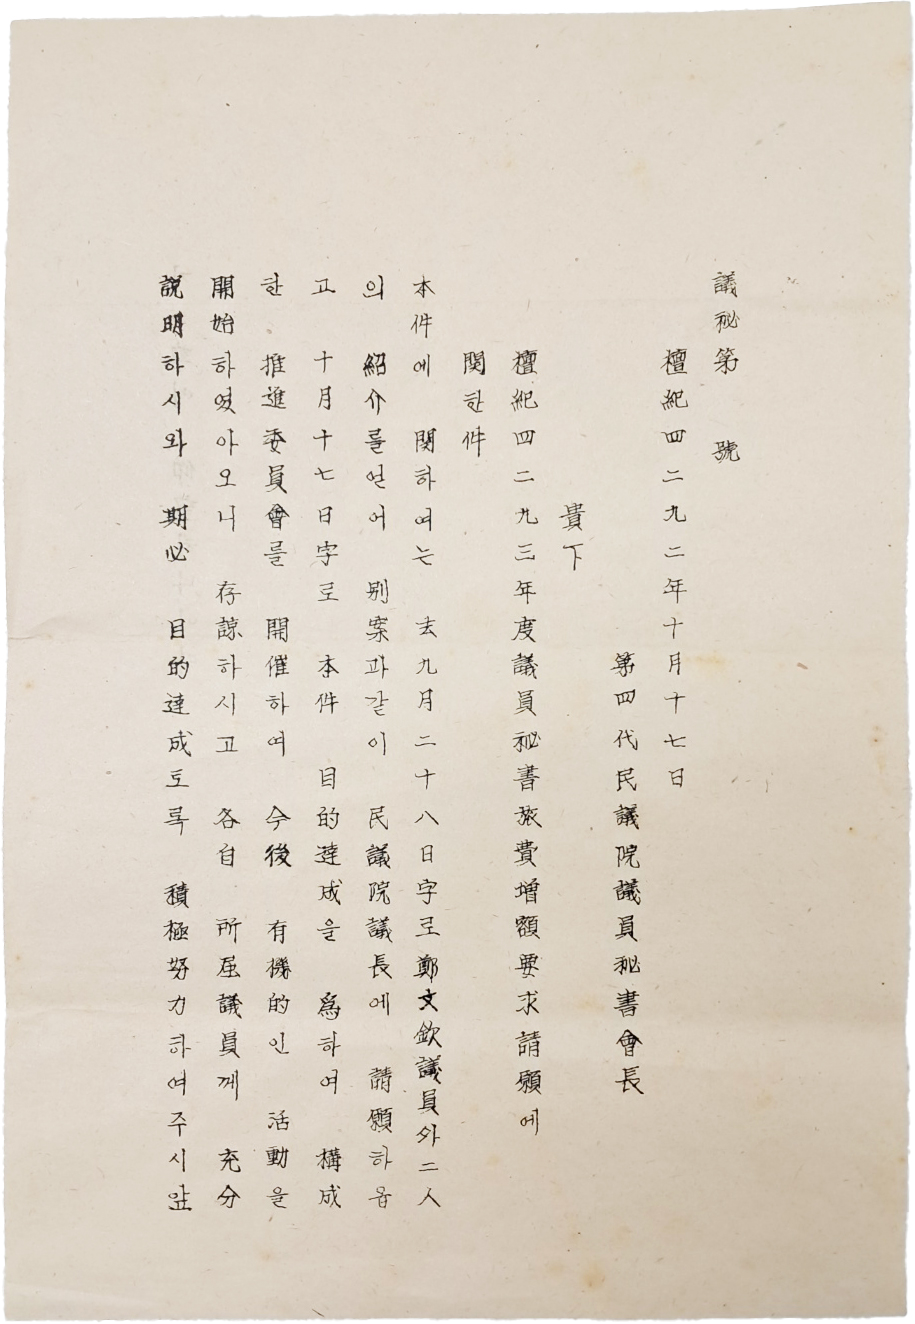 議秘第 號
檀紀四二九二年十月十七日
第四代民議院議員秘書會長
貴下
檀紀四二九三年度議員秘書旅費增額要求請願에
関한件
本件에 関하여는 去九月二十八日字로鄭文欽議員外二人
의 紹介를얻어 別案과같이 民議院議長에 請願하옵
고 十月十七日字로 本件 目的達成을 爲하여 構成
한 推進委員會를 開催하여 今後 有機的인 活動을
開始하였아오니 存諒하시고 各自 所屈議員께 充分
說明하시와 期必 目的達成토록 積極努力하여주시앞